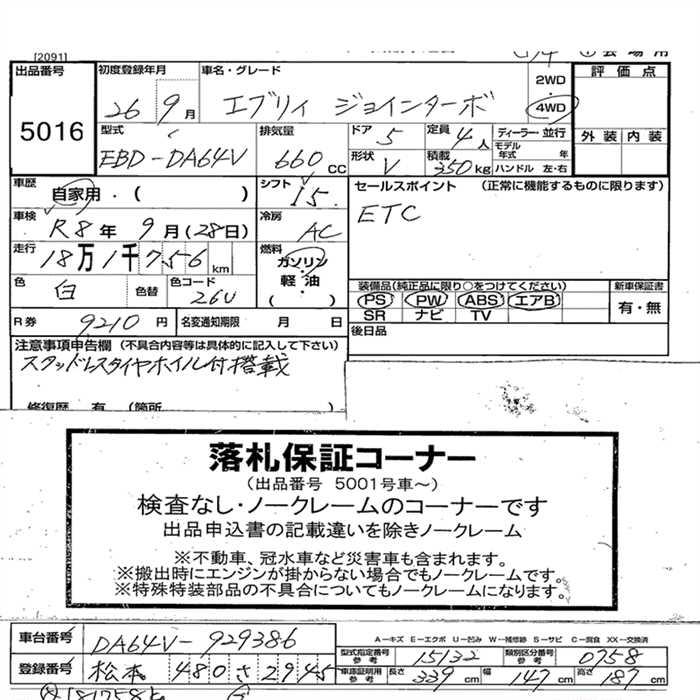 [2091]
出品番号 5016
初度登録年月 26 9月
車名・グレード エブリィ ジョインターボ
2WD
4WD
評価点
外装 内装
型式 EBD-DA64V
排気量 660 CC
ドア 5
定員 4人
ディーラー・並行
モデル年式 年
形状 V
積載 350kg
ハンドル 左・右
車歴 自家用・( )
シフト I5
セールスポイント (正常に機能するものに限ります)
ETC
車検 R8年 9月(28日)
冷房 AC
走行 18万1千756km
燃料 ガソリン・軽油 ( )
色 白
色替
色コード 26U
装備品(純正品に限り○をつけてください)
PS PW ABS エアB
SR ナビ TV
新車保証書
有・無
R券 9210円
名変通知期限 月 日
後日品
注意事項申告欄 (不具合内容等は具体的に記入して下さい)
スタッドレスタイヤホイル付搭載
修復歴 有 (箇所
落札保証コーナー
(出品番号 5001号車~)
検査なし・ノークレームのコーナーです
出品申込書の記載違いを除きノークレーム
※不動車、冠水車など災害車も含まれます。
※搬出時にエンジンが掛からない場合でもノークレームです。
※特殊特装部品の不具合についてもノークレームになります。
車台番号 DA64V-929386
A-キズ E-エクボ U-凹み W-補修跡 S-サビ C-腐食 XX-交換済
型式指定番号 参考 15132
類別区分番号 参考 0758
登録番号 松本 480 さ 2945
車庫証明用 参考 長さ 339cm 幅 147cm 高さ 187cm